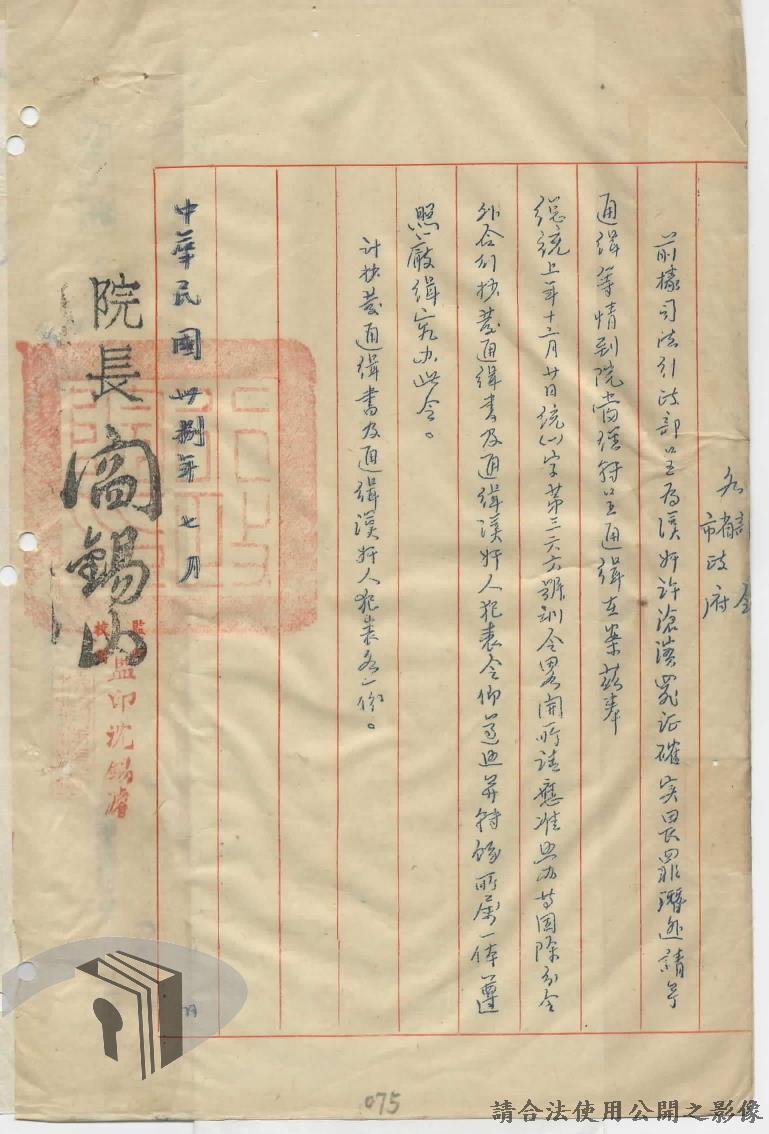 令
各省市政府
前據司法行政部呈為漢奸許滄溟罪証確实畏罪潛逃請予
通缉等情到院當經轉呈通缉在案茲奉
總統上年十二月廿日統(一)字第三六六號訓令畧開所請應准照办等因除分令
外合行抄發通缉書及通缉漢奸人犯表令仰遵照并轉飭所属一体遵
照嚴缉究办此令。
計抄發通缉書及通缉漢奸人犯表各一份。
中華民國卅捌年七月
日
院長閻錫山
監印沈錫濬
075
請合法使用公開之影像